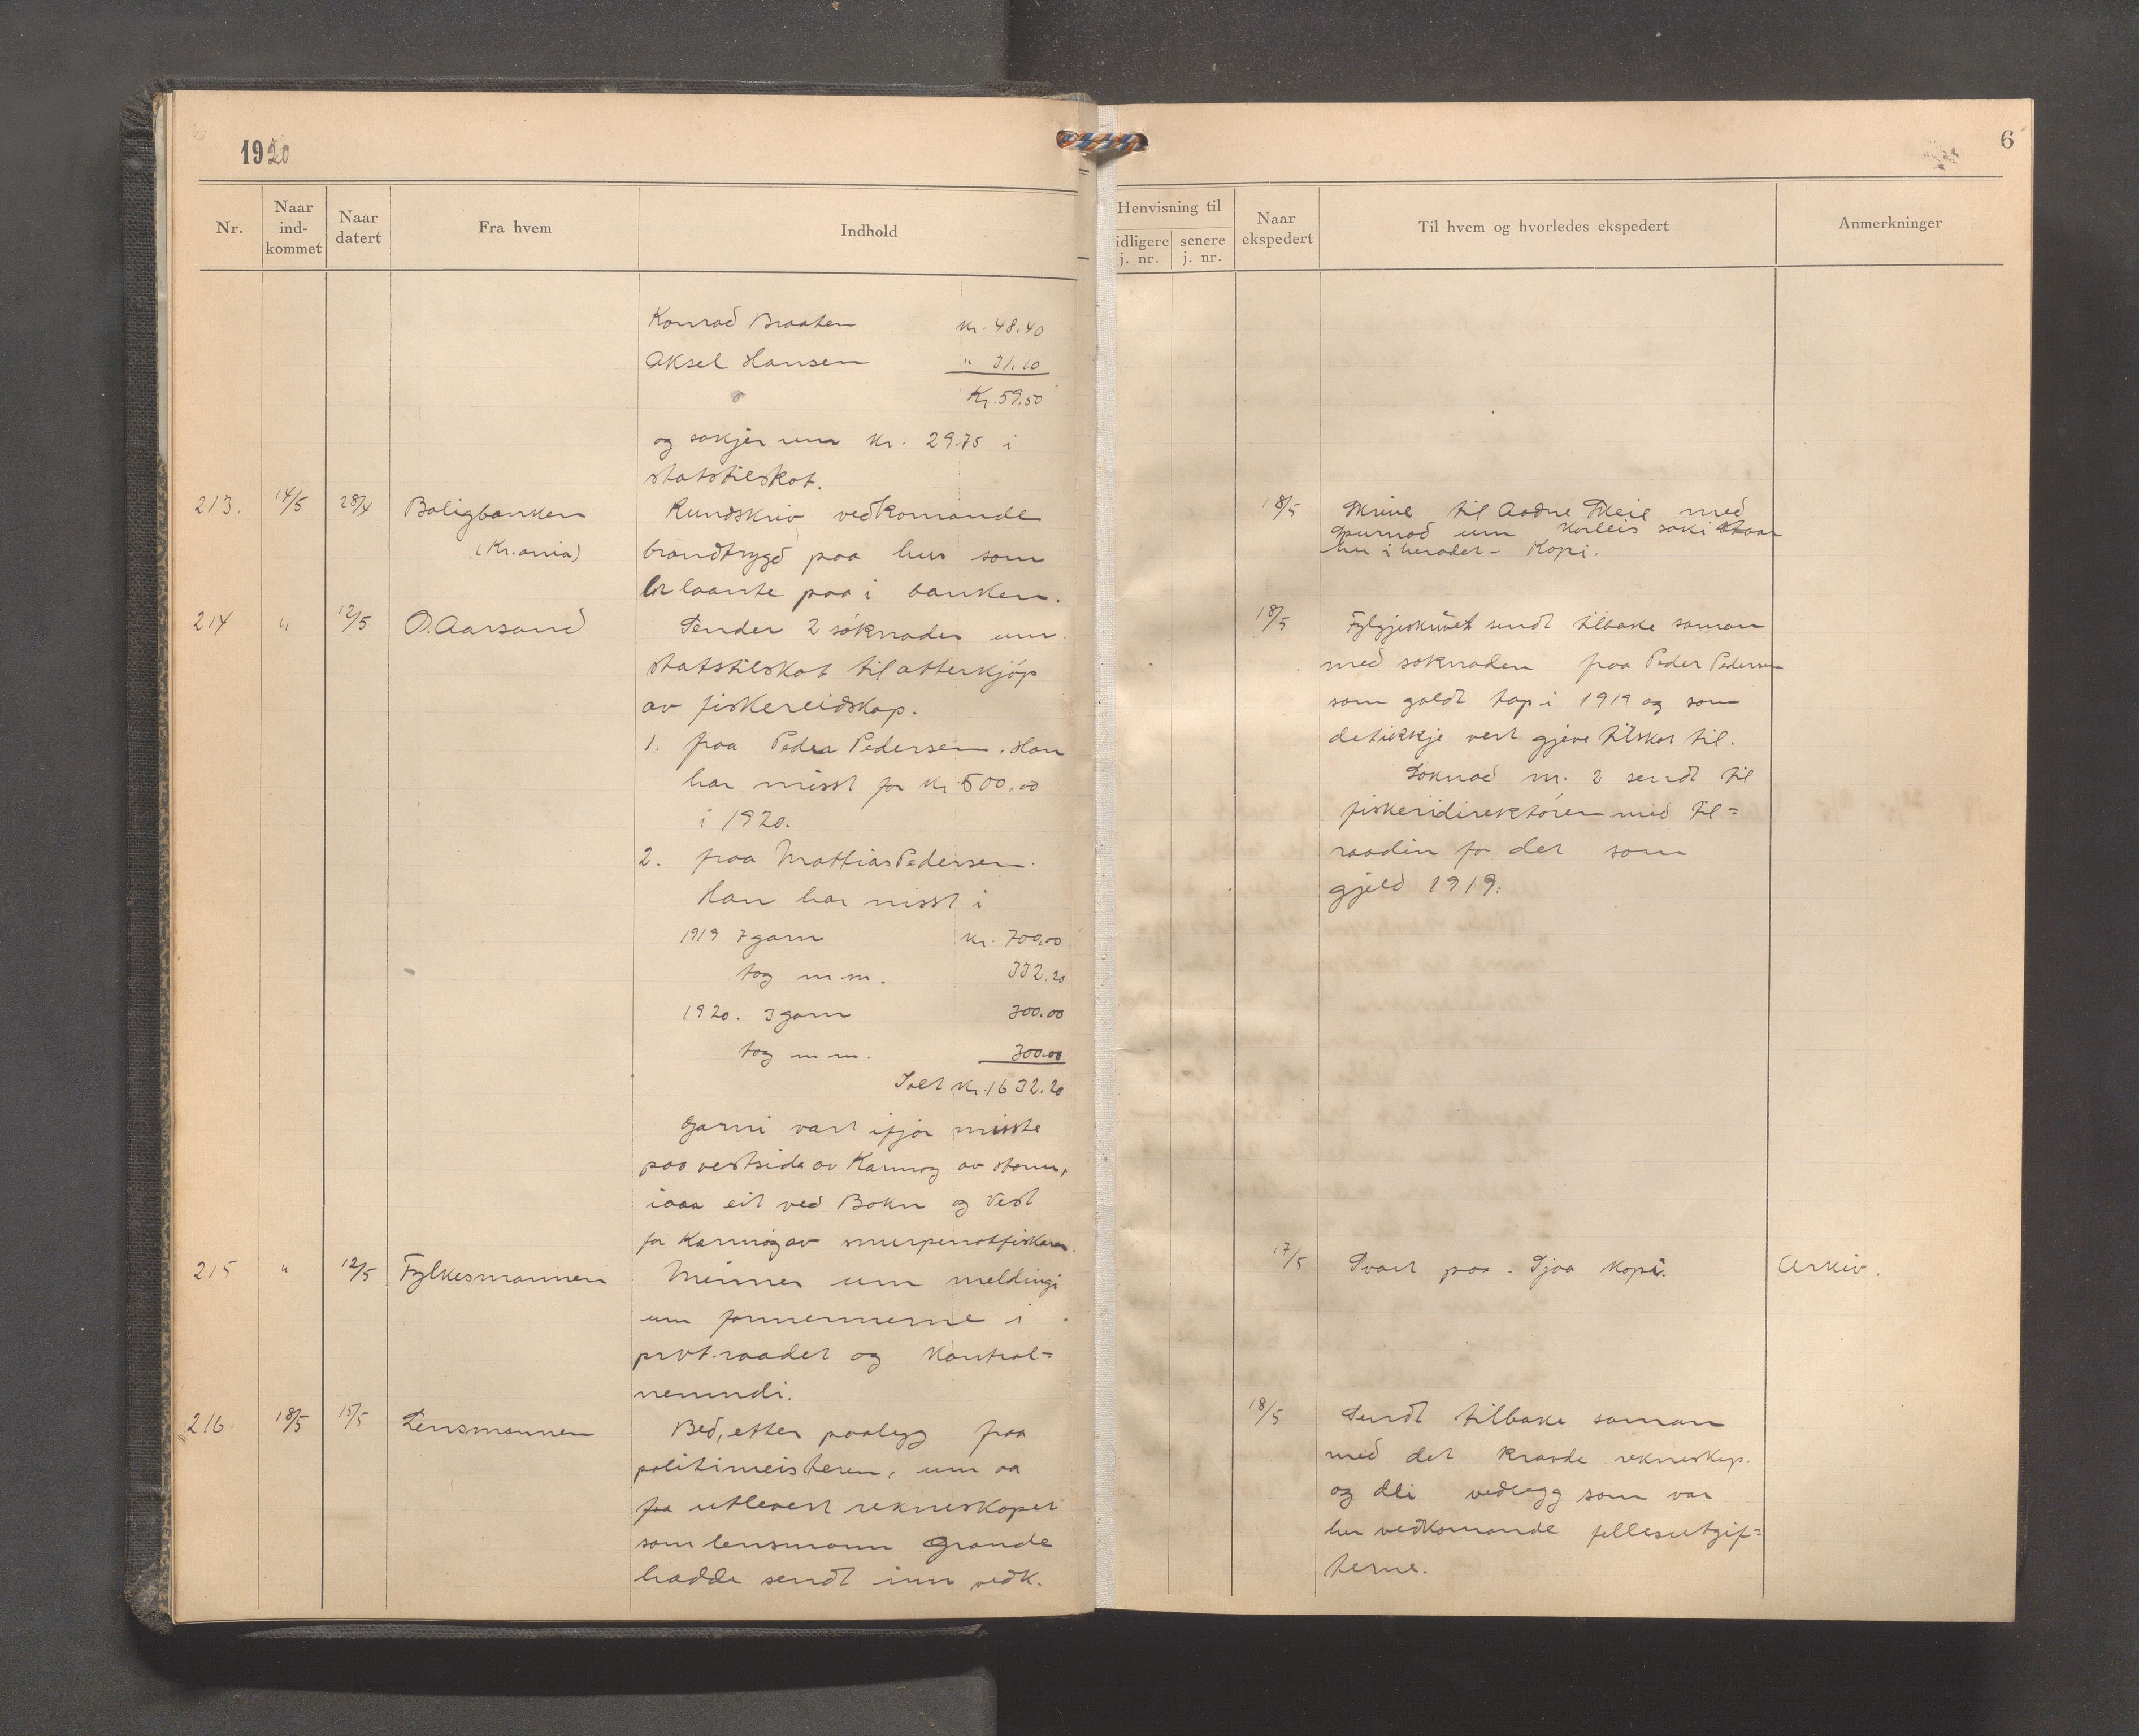 1920
Nr.
Naar
ind-
kommet
Naar
datert
Fra hvem
Indhold
Konrad Braaten kr. 48.40
Aksel Hansen " 31.10
Kr. 59.50
og søkjer um kr. 29.75 i
statstilskot.
213. 14/5 28/4 Boligbanken Rundskriv vedkomande
(Kr.ania) brandtrygd paa hus som
er laante paa i banken.
214 " 12/5 O. Aarsand Sender 2 søknader um
statstilskot til atterkjøp
av fiskereidskap.
1. fraa Peder Pedersen. Han
har misst for kr. 500.00
i 1920.
2. fraa Mattias Pedersen.
Han har misst i
1919 7 garn kr. 700.00
tog m.m. 332.20
1920. 3 garn 300.00
tog m.m. 300.00
Ialt kr. 1632.20
Garni vart ifjor misste
paa vestsida av Karmøy av storm,
iaar eit ved Bokn og Vest
for Karmøy av snurpenotfiskarar.
215 " 12/5 Fylkesmannen Minner um meldingi
um formennerne i
prov.raadet og kontrol=
nemndi.
216. 18/5 15/5 Lensmannen Bed, etter paalegg fraa
politimeisteren, um aa
faa utlevert rekneskapet
som lensmann Grande
hadde sendt inn vedk.
6
Henvisning til
idligere
j. nr.
senere
j. nr.
Naar
ekspedert
Til hvem og hvorledes ekspedert
Anmerkninger
18/5 Skrive til Aadne Skeie med
spurnad um korleis saki staar
her i heradet - Kopi.
18/5 Fylgjeskrivet sendt tilbake saman
med søknaden fraa Peder Pedersen
som galdt tap i 1919 og som
det ikkje vert gjeve tilskot til.
Søknad nr. 2 sendt til
fiskeridirektøren med til=
raading for det som
gjeld 1919.
17/5 Svart paa. Sjaa kopi. Arkiv.
18/5 Sendt tilbake saman
med det kravde rekneskap.
og dei vedlegg som var
her vedkomande fellesutgif=
terne.